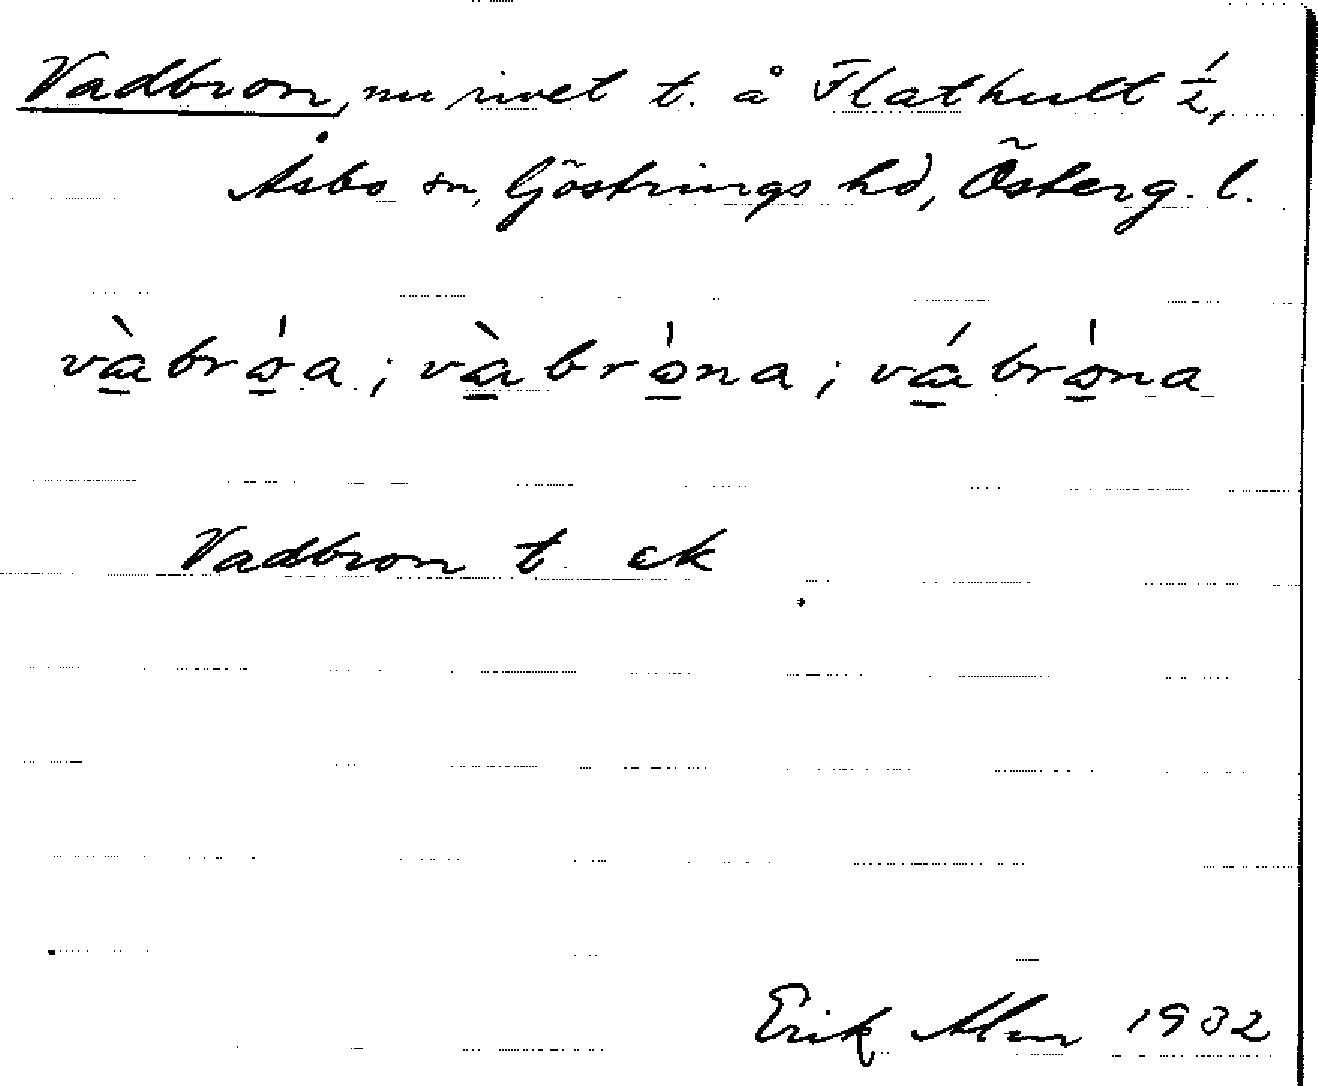 Vadbron, nu rivet t. å Flathult 1/2,
Åsbo sn, Göstrings hd, Österg. l.
và̱bró̱a; và̱bró̱na; vá̱bró̱na
Vadbron t ek
Erik Alm 1932